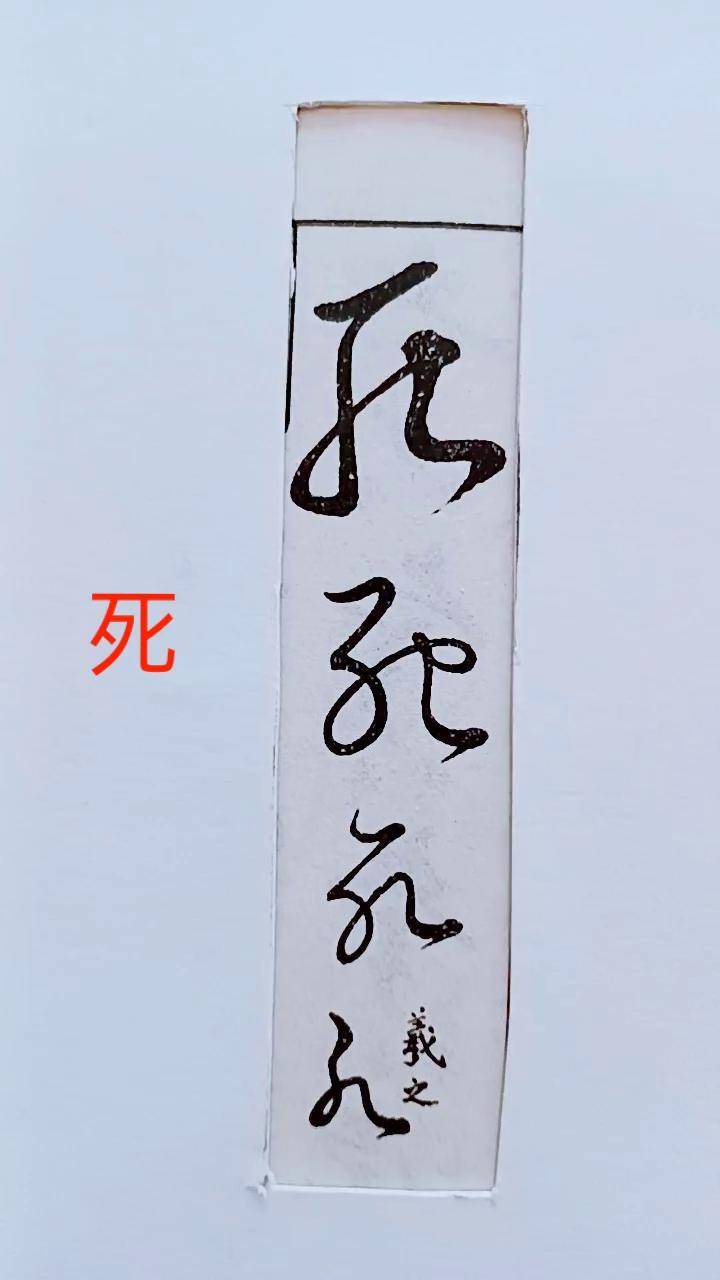 死
死
死
死
死
羲之